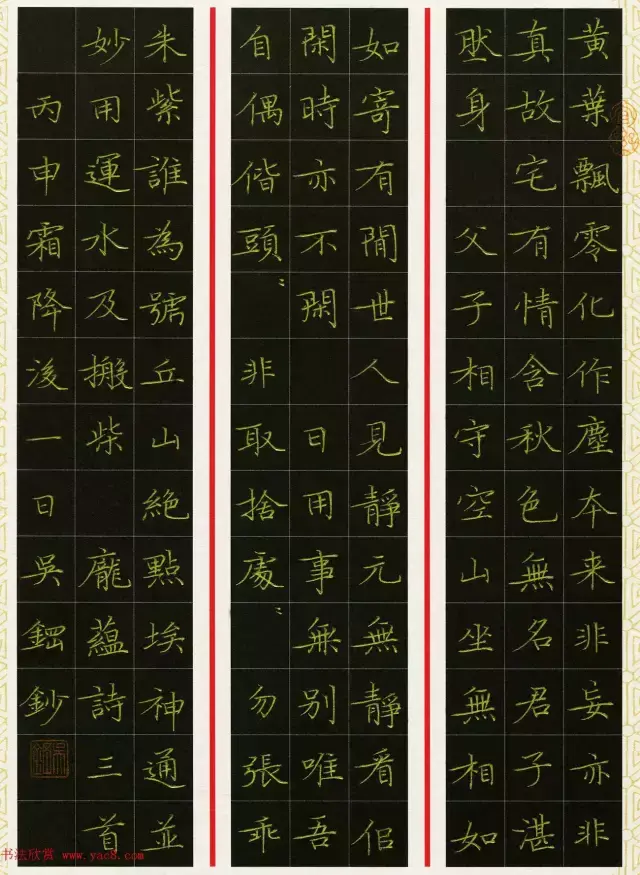 黃葉飄零化作塵本来非妄亦非
真故宅有情含秋色無名君子湛
肰身 父子相守空山坐無相如
如寄有閒世人見靜元無靜看佀
閑時亦不閑 日用事無别唯吾
自偶偕頭〻 非取捨處〻 勿張乖
朱紫誰為號丘山絕點埃神通並
妙用運水及搬柴 龐蘊詩三首
丙申霜降後一日吳鋼鈔
书法欣赏 www.yac8.com